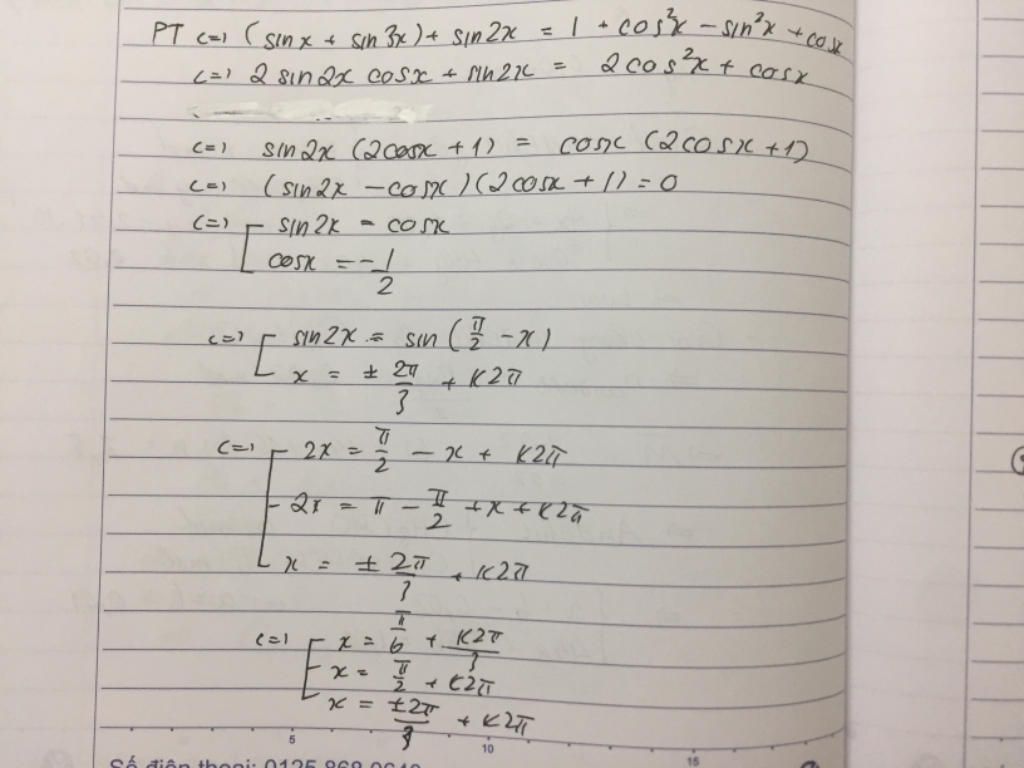 PT <=> (sinx + sin3x) + sin2x = 1 + cos²x - sin²x + cosx
<=> 2 sin2x cosx + sin2x = 2cos²x + cosx
<=> sin2x (2cosx + 1) = cosx (2cosx + 1)
<=> (sin2x - cosx)(2cosx + 1) = 0
<=> [ sin2x = cosx
cosx = -1/2
<=> [ sin2x = sin(π/2 - x)
x = ± 2π/3 + K2π
<=> [ 2x = π/2 - x + K2π
2x = π - π/2 + x + K2π
x = ± 2π/3 + K2π
<=> [ x = π/6 + K2π/3
x = π/2 + K2π
x = ±2π/3 + K2π
5 10 15
Số điện thoại: 0125.868.0640